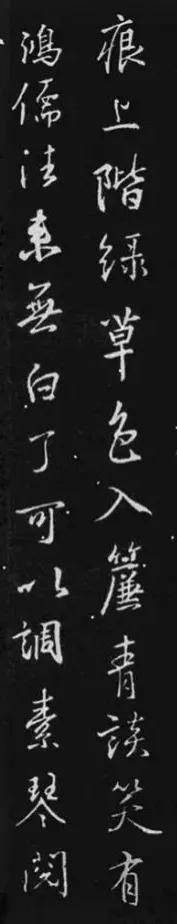 痕上階緑草色入簾青談笑有
鴻儒往来無白丁可以調素琴閲